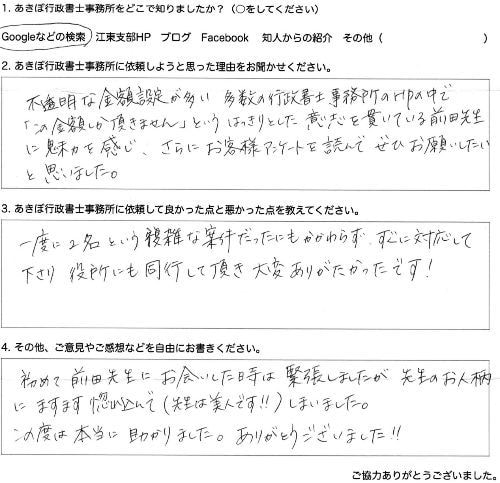 1. あきぼ行政書士事務所をどこで知りましたか？（○をしてください）
Googleなどの検索 江東支部HP ブログ Facebook 知人からの紹介 その他（ ）
2. あきぼ行政書士事務所に依頼しようと思った理由をお聞かせください。
不透明な金額設定が多い 多数の行政書士事務所のHPの中で
「この金額しか頂きません」という はっきりとした 意志を貫いている前田先生
に魅力を感じ、さらにお客様アンケートを読んで ぜひお願いしたい
と思いました。
3. あきぼ行政書士事務所に依頼して良かった点と悪かった点を教えてください。
一度に2名という複雑な案件だったにもかかわらず、すぐに対応して
下さり 役所にも同行して頂き 大変ありがたかったです!
4. その他、ご意見やご感想などを自由にお書きください。
初めて前田先生にお会いした時は 緊張しましたが 先生のお人柄
にますます惚れ込んで(先生は美人です!!)しまいました。
この度は本当に助かりました。ありがとうございました!!
ご協力ありがとうございました。